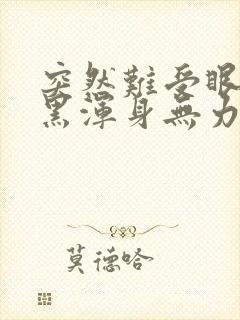 突然難受眼
黑渾身無力
莫德哈